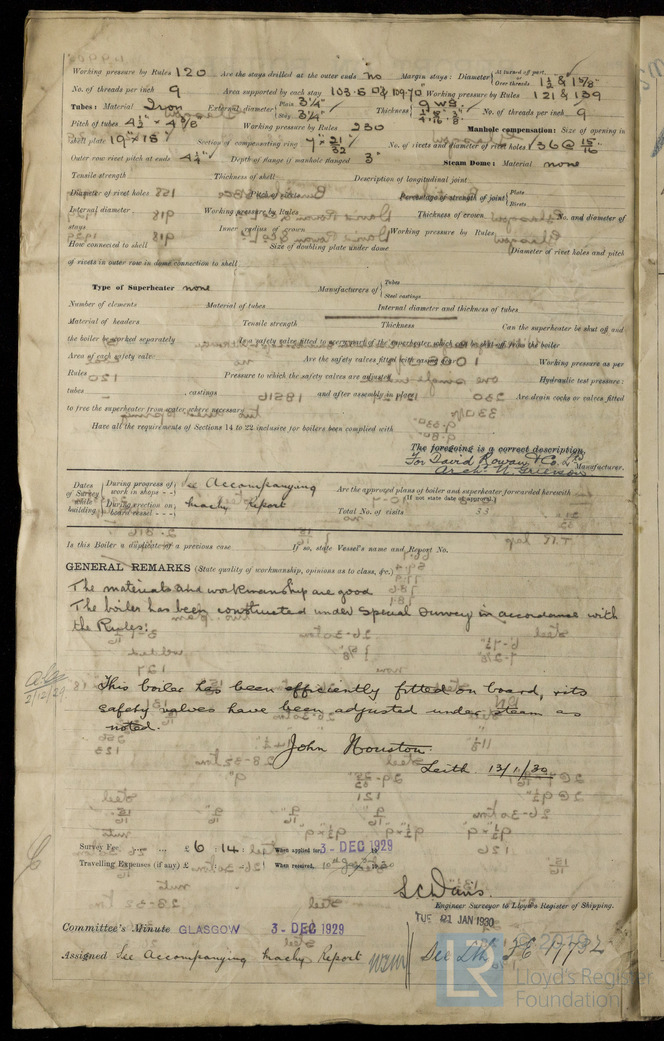 Working pressure by Rules 120 Are the stays drilled at the outer ends no Margin stays: Diameter { At turned off part, or Over threads 1½ & 1⅝"
No. of threads per inch 9 Area supported by each stay Working pressure by Rules 121 & 139
Tubes: Material Iron External diameter { Plain 3¼" Stay 3¼" Thickness { 9 WG No. of threads per inch 9
Pitch of tubes 4½" × 4⅜" Working pressure by Rules 250 Manhole compensation: Size of opening in
shell plate 19" × 15" Section of compensating ring 7" × 21/32" No. of rivets and diameter of rivet holes 36 @ 15/16
Outer row rivet pitch at ends Depth of flange if manhole flanged 3" Steam Dome: Material none
Tensile strength Thickness of shell Description of longitudinal joint
Diameter of rivet holes Pitch of rivets Percentage of strength of joint { Plate Rivets
Internal diameter Working pressure by Rules Thickness of crown No. and diameter of
stays Inner radius of crown Working pressure by Rules
How connected to shell Size of doubling plate under dome Diameter of rivet holes and pitch
of rivets in outer row in dome connection to shell
Type of Superheater none Manufacturers of { Tubes Steel castings
Number of elements Material of tubes Internal diameter and thickness of tubes
Material of headers Tensile strength Thickness Can the superheater be shut off and
the boiler be worked separately Is a safety valve fitted to every part of the superheater which can be shut off from the boiler
Area of each safety valve Are the safety valves fitted with easing gear Working pressure as per
Rules Pressure to which the safety valves are adjusted Hydraulic test pressure:
tubes , castings and after assembly in place Are drain cocks or valves fitted
to free the superheater from water where necessary
Have all the requirements of Sections 14 to 22 inclusive for boilers been complied with
The foregoing is a correct description,
For David Rowan & Co. Ltd
Manufacturer.
Dates of Survey while building { During progress of work in shops - - } See Accompanying Are the approved plans of boiler and superheater forwarded herewith (If not state date of approval.)
{ During erection on board vessel - - - } Machy Report Total No. of visits 33
Is this Boiler a duplicate of a previous case If so, state Vessel's name and Report No.
GENERAL REMARKS (State quality of workmanship, opinions as to class, &c.)
The materials and workmanship are good
The boiler has been constructed under Special Survey in accordance with
the Rules.
2/12/29
This boiler has been efficiently fitted on board, & its
safety valves have been adjusted under steam as
noted.
John Houston
Leith 13/1/30
Survey Fee ... ... ... £ 6 : 14 : When applied for, 3-DEC 1929
Travelling Expenses (if any) £ : : When received,
S C Davis
Engineer Surveyor to Lloyd's Register of Shipping.
TUE 21 JAN 1930
Committee's Minute GLASGOW 3-DEC 1929
Assigned See Accompanying Machy Report
LR
Lloyd's Register
Foundation